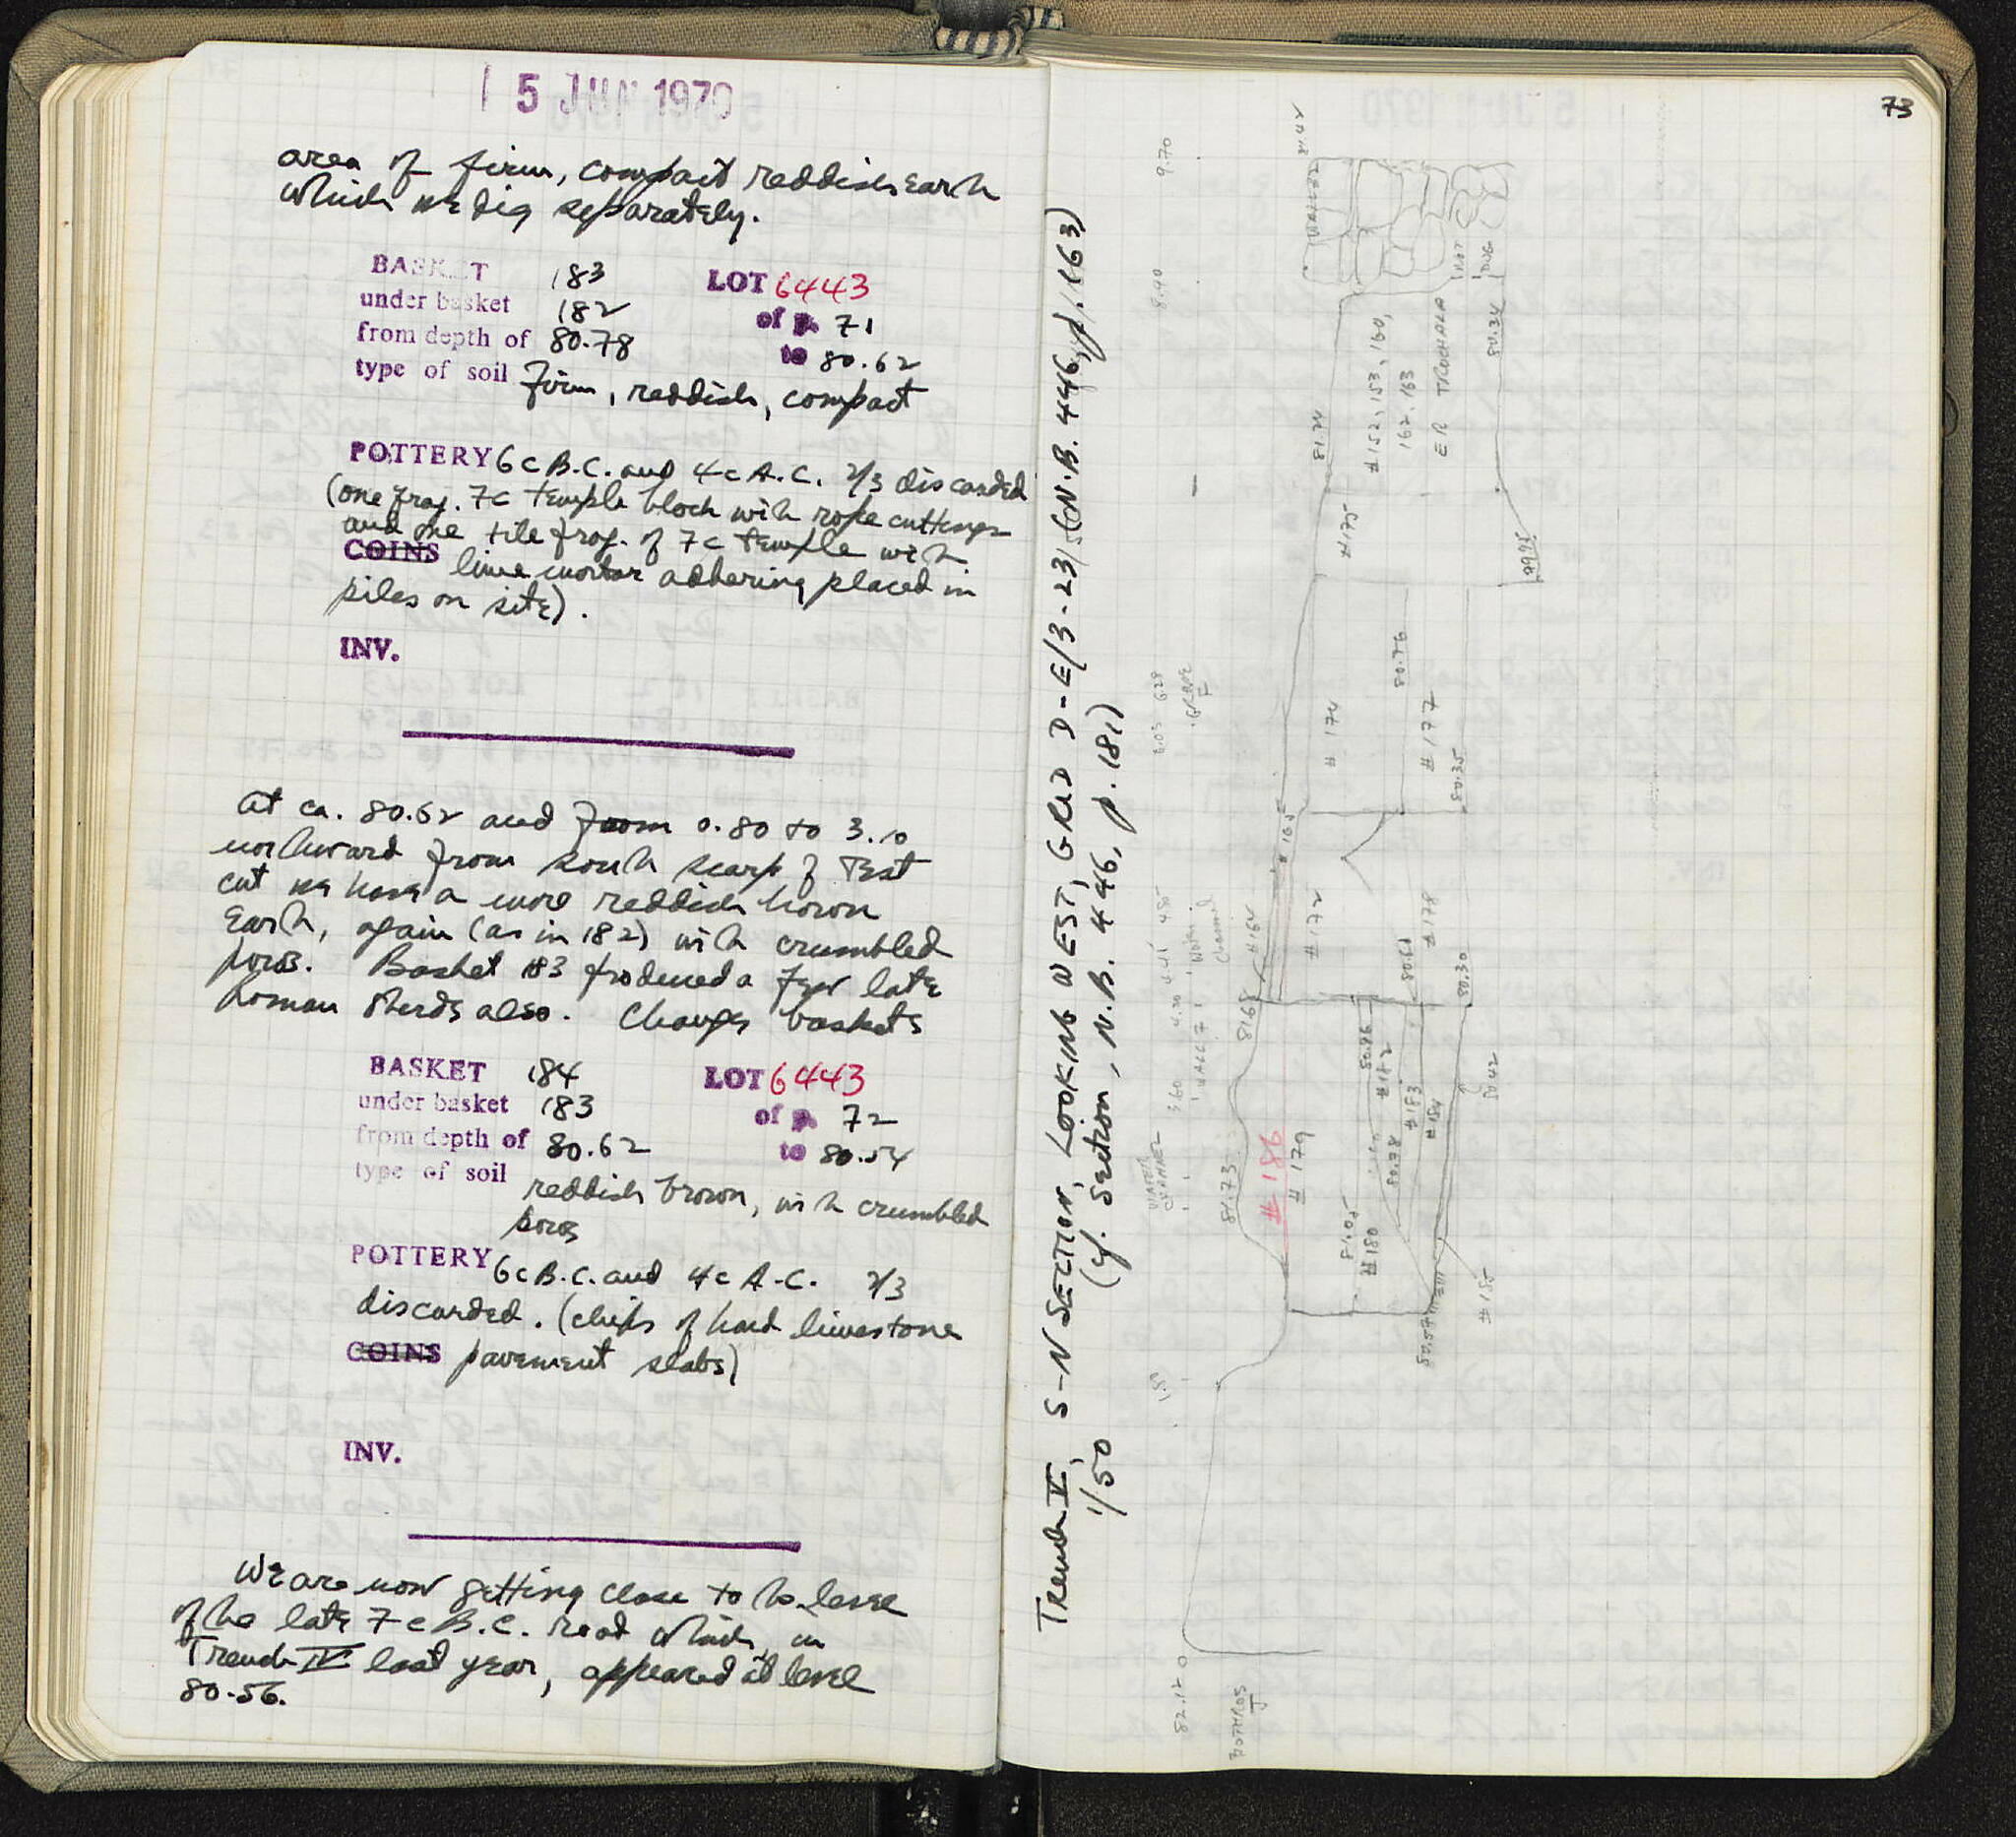 15 JUN 1970
area of firm, compact reddish earth
which we dig separately.
BASKET 183 LOT 6443
under basket 182 of p. 71
from depth of 80.78 to 80.62
type of soil firm, reddish, compact
POTTERY 6c B.C. and 4c A.C. 2/3 discarded
(one frag. 7c temple block with rope cuttings
and one tile frag. of 7c temple with
COINS lime mortar adhering placed in
piles on site).
INV.
At ca. 80.62 and from 0.80 to 3.10
northward from south scarp of Test
cut we have a more reddish brown
earth, again (as in 182) with crumbled
poros. Basket 183 produced a few late
Roman sherds also. Change baskets
BASKET 184 LOT 6443
under basket 183 of p. 72
from depth of 80.62 to 80.54
type of soil reddish brown, with crumbled
poros
POTTERY 6c B.C. and 4c A.C. 2/3
discarded. (chips of hard limestone
COINS pavement slabs)
INV.
We are now getting close to the level
of the late 7c B.C. road which, in
Trench IV last year, appeared at level
80.56.
73
Trench V, S-N SECTION, LOOKING WEST, GRID D-E/3-23/5 (N.B. 446, p. 163)
1/50 (cf. Section, N.B. 446, p. 181)
9.70
8.90
6.29
6.05
GRAVE
F
4.85
4.41
4.20
Water
Channel
WALL 7
3.60
WATER
CHANNEL
1.50
0
82.12
BOTHROS
J
NOT
DUG
80.34
81.24
#152, 153, 160,
162, 163
ER TROCHALA
#175
79.95
#174
80.76
#177
80.35
#165
#172
#164
#178
80.61
80.30
81.65
80.96
#182
#183
#184
80.78
80.42
81.73
#186
#179
81.05
#180
80.57
#185